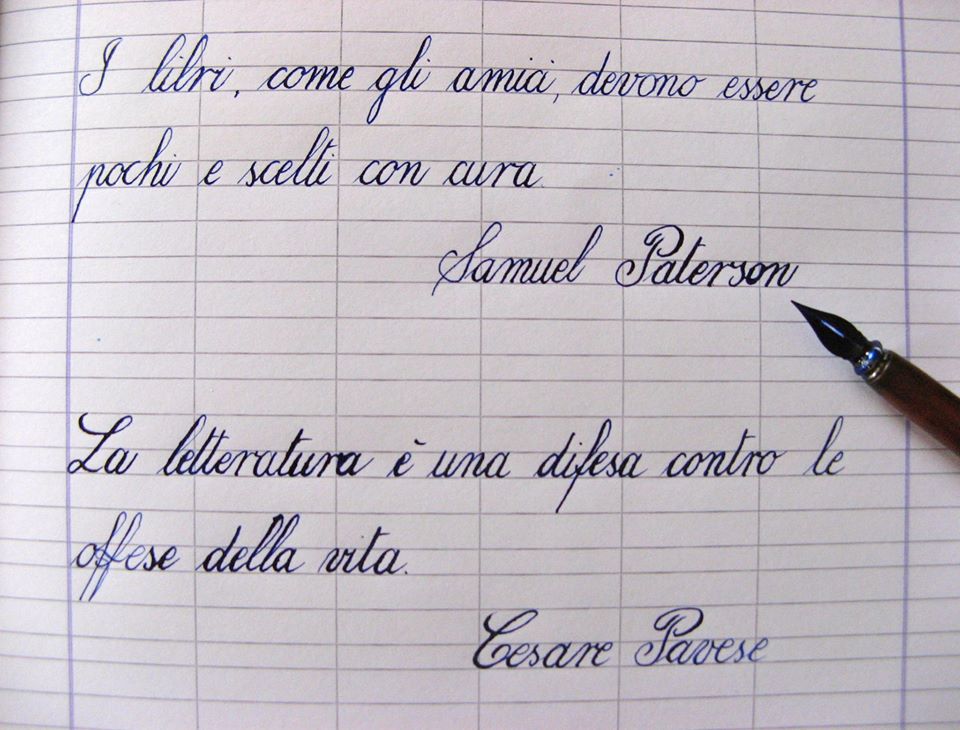 I libri, come gli amici, devono essere
pochi e scelti con cura.
Samuel Paterson
La letteratura è una difesa contro le
offese della vita.
Cesare Pavese